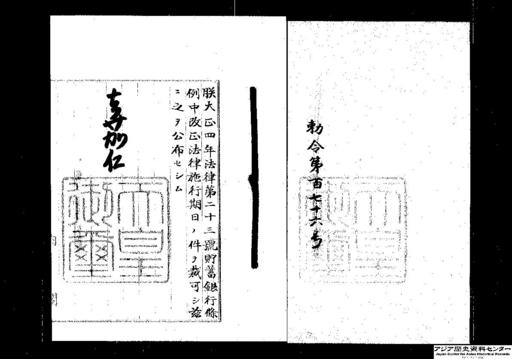 勅令第百七十六号
朕大正四年法律第二十三號貯蓄銀行條
例中改正法律施行期日ノ件ヲ裁可シ茲
ニ之ヲ公布セシム
嘉仁
天皇
御璽
アジア歴史資料センター
Japan Center for Asian Historical Records